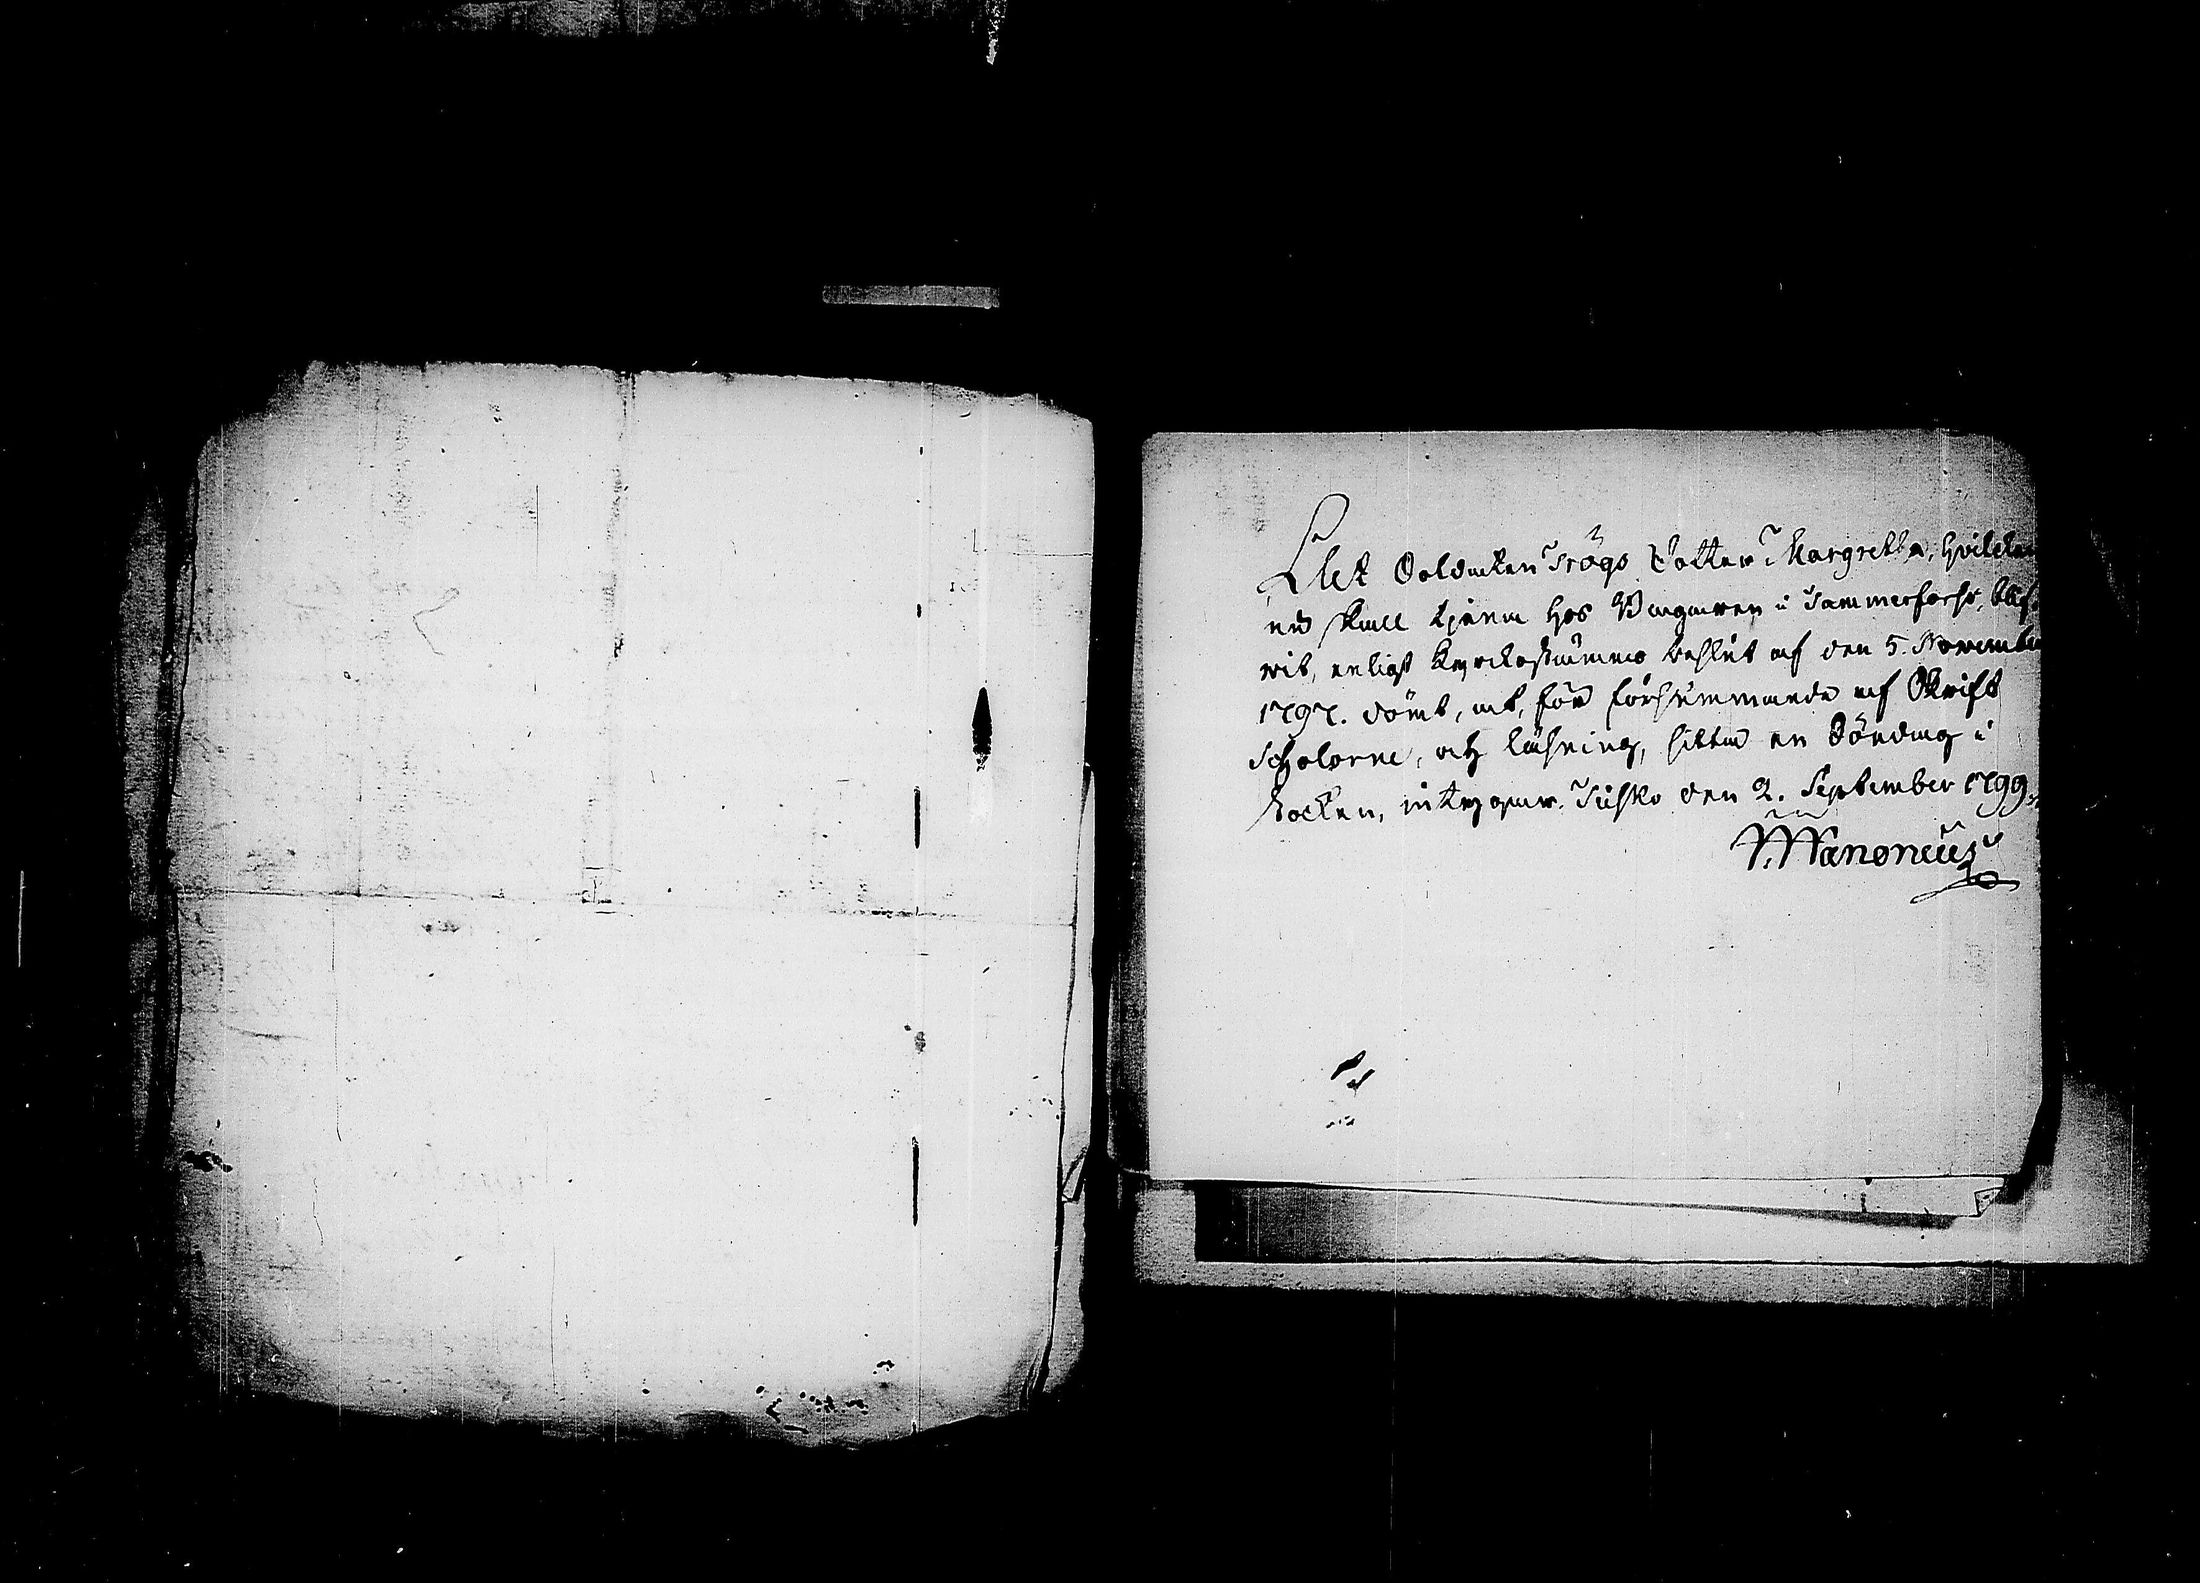 Att Soldaten Trögs Dotter Margretha, hvilken
nu skall tjena hos Wargaren i Tammerfors, blif-
vit, enligt Kyrckostämmo beslut af den 5. November
1797. dömt, at, för försummande af Skrift
Scholorne, och läsning, sittia en Söndag i
stocken, intygar. Tiisko den 2. September 1799.